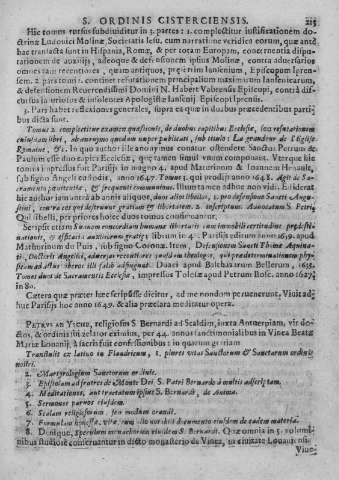 S. ORDINIS CISTERCIENSIS. 215
Hic tomus rursus subdiuiditur in 3. partes: 1. complectitur iustificationem do-
ctrinæ Ludouici Molinæ, Societatis Iesu, cum narratione veridica eorum, quæ ant-
hac transacta sunt in Hispania, Romæ, & per totam Europam, concernentia dispu-
tationem de auxilijs, adeoque & defensionem ipsius Molinæ, contra aduersarios
omnes tam recentiores, quam antiquos, præsertim Iansenium, Episcopum Ipren-
sem. 2. continet tractatum de efficacia gratiæ, libertate,
& defensionem Reuerendissimi Domini N. Habert Vabrensis Episcopi, contra di-
scursus iniurios & insolentes Apologistæ Iansenij Episcopi Iprensis.
3. Pars habet reflexiones generales, supra ea quæ in duobus præcedentibus parti-
bus dicta sunt.
Tomus 2. complectitur examen quæstionis, de duobus capitibus Ecclesiæ, seu refutationem
cuiusdam libri, absque nomine apud nos nuper publicati, sub titulo: La grandeur de l'Eglise
Romaine, &c. In quo author ille anonymus conatur ostendere Sanctus Petrum &
Paulum esse duo capita Ecclesiæ, quæ tamen simul vnum componant. Vterque hic
tomus impressus fuit Parisijs in magno 4. apud Mathurinum & Ioannem Henault,
sub signo Angeli custodis, anno 1647. Tomus 3. qui prodijt anno 1648. Agit de Sa-
cramento pœnitentiæ, & frequenti communione. Illum tamen adhuc non vidi. Ediderat
hic author iam ante ab annis aliquot, duos alios libellos, 1. pro defensione Sancti Augu-
stini, contra errores destruentes gratiam & libertatem. 2. inscriptus: Adoratio S. Petri,
Qui libelli, per priores hosce duos tomos consummati.
Scripsit etiam Summam concordiam humanæ libertatis cum immobili certitudine prædefi-
nitionis, & efficacis auxiliorum gratiæ: librum in 4. Parisijs editum anno 1639. apud
Mathurinum du Puis, sub signo Coronæ. Item, Defensionem Sancti Thomæ Aquina-
tis, Doctoris Angelici, aduersus recentiores in theologia, qui prædeterminationem phy-
sicam ad actus liberos illi falsò assignant. Duaci apud Balthazarem Bellerum, 1635.
Tomus duos de Sacramentis Ecclesiæ, impressos Tolosæ apud Petrum Bosc. anno 1627,
in 80.
Cætera quæ præter hæc scripsisse dicitur, ad me nondum peruenerunt, Viuit ad-
huc Parisijs hoc anno 1649. & alia præclara meditatur opera.
PETRVS AN YSCHE, religiosus S. Bernardi ad Scaldim, iuxta Antuerpiam, vir do-
ctus, & ordinis sui zelator eximius, per 44. annos sanctimonialibus in Vinea Beatæ
Mariæ Louanij, à sacris fuit confessionibus: in quarum gratiam
Transtulit ex latino in Flandricum, 1. plures vitas Sanctorum & Sanctarum ordinis
nostri.
2. Martyrologium Sanctorum ordinis.
3. Epistolam ad fratres de Monte Dei S. Patri Bernardo à multis adscriptam.
4. Meditationes, aut tractatum ipsius S. Bernardi, de Anima.
5. Sermones paruos eiusdem.
6. Scalam religiosorum, seu modum orandi.
7. Formulam honestæ vitæ, cum documento eiusdem de eadem materia.
8. Denique, speculum monachorum eiusdem S. Bernardi. Quæ omnia in 5. volumi-
nibus studiosè conseruantur in dicto monasterio de Vinea, in ciuitate Louaniensi.
Viuo-